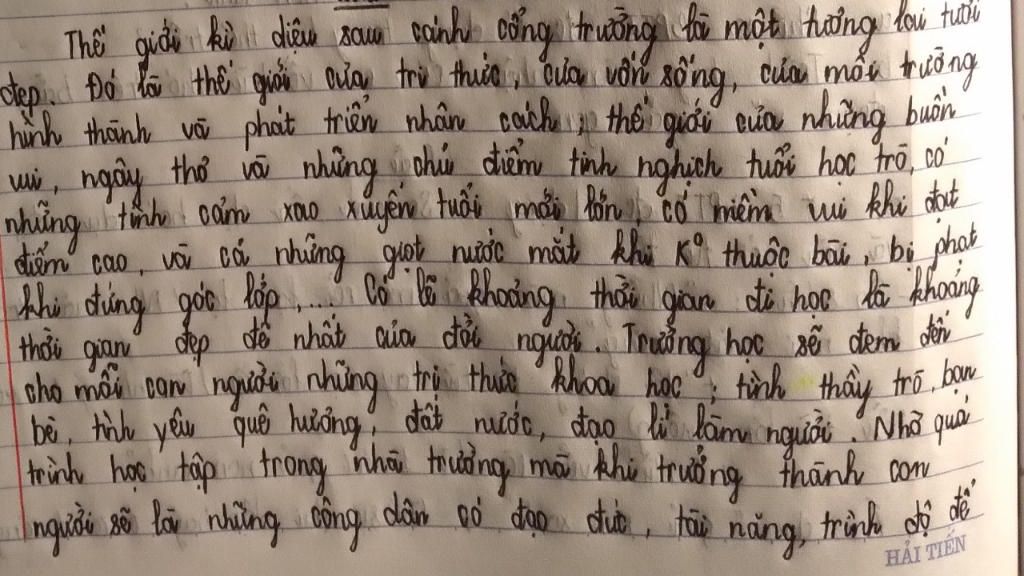 Thế giới kì diệu sau cánh cổng trường là một tương lai tươi
đẹp. Đó là thế giới của tri thức, của vốn sống, của môi trường
hình thành và phát triển nhân cách; thế giới của những buồn
vui, ngây thơ và những chú điểm tinh nghịch tuổi học trò, có
những tình cảm xao xuyến tuổi mới lớn, có niềm vui khi đạt
điểm cao, và cả những giọt nước mắt khi K° thuộc bài, bị phạt
khi đứng góc lớp,.... Có lẽ khoảng thời gian đi học là khoảng
thời gian đẹp đẽ nhất của đời người. Trường học sẽ đem đến
cho mỗi con người những tri thức khoa học; tình thầy trò, bạn
bè, tình yêu quê hương, đất nước, đạo lí làm người. Nhờ quá
trình học tập trong nhà trường mà khi trưởng thành con
người sẽ là những công dân có đạo đức, tài năng, trình độ để
HẢI TIẾN